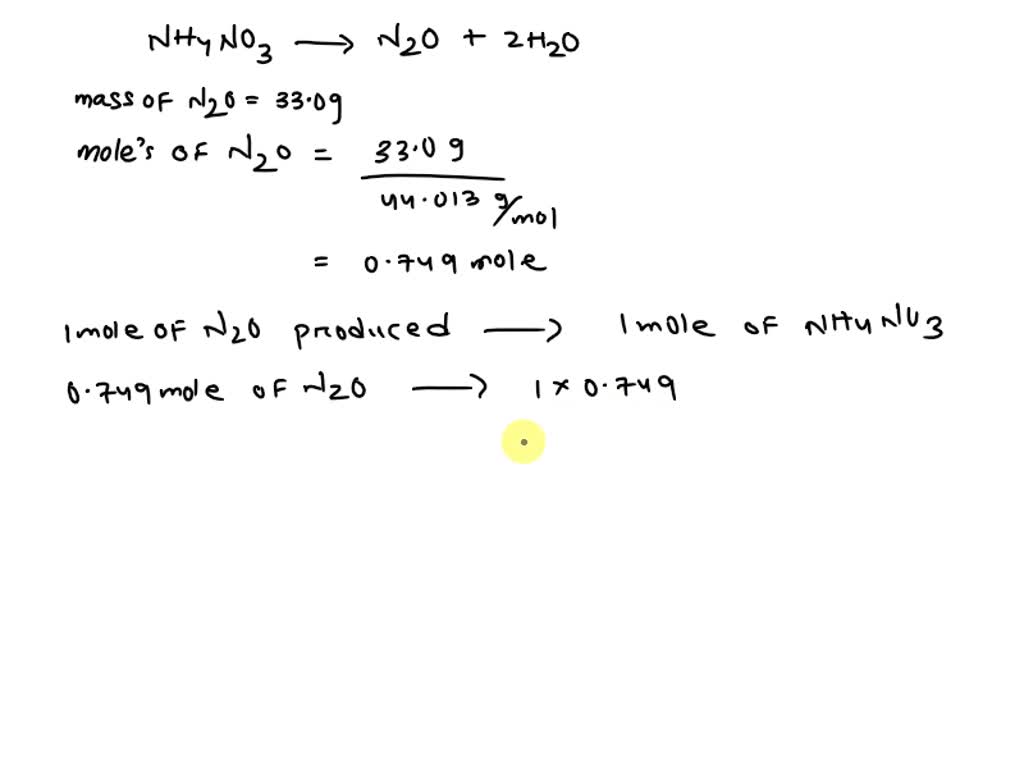 NH4NO3 ⟶ N2O + 2H2O
mass of N2O = 33.0g
mole's of N2O = 33.0 g
44.013 g/mol
= 0.749 mole
1mole of N2O produced ⟶ 1mole of NH4NO3
0.749 mole of N2O ⟶ 1 × 0.749